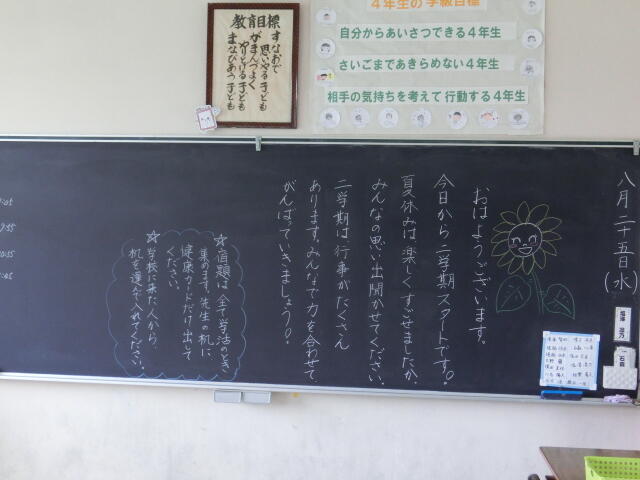 教育目標
すなおで
思いやる子ども
がまんづよく
やりとげる子ども
まなびあう子ども
4年生の学級目標
自分からあいさつできる4年生
さいごまであきらめない4年生
相手の気持ちを考えて行動する4年生
八月二十五日(水)
おはようございます。
今日から二学期スタートです。
夏休みは楽しくすごせましたか。
みんなの思い出聞かせてください。
二学期は行事がたくさん
あります。みんなで力を合わせて
がんばっていきましょう。
☆宿題は全て学活のとき
集めます。先生の机に
健康カードだけ出して
ください。
☆学校に来た人から、
机を運んで入れてください。